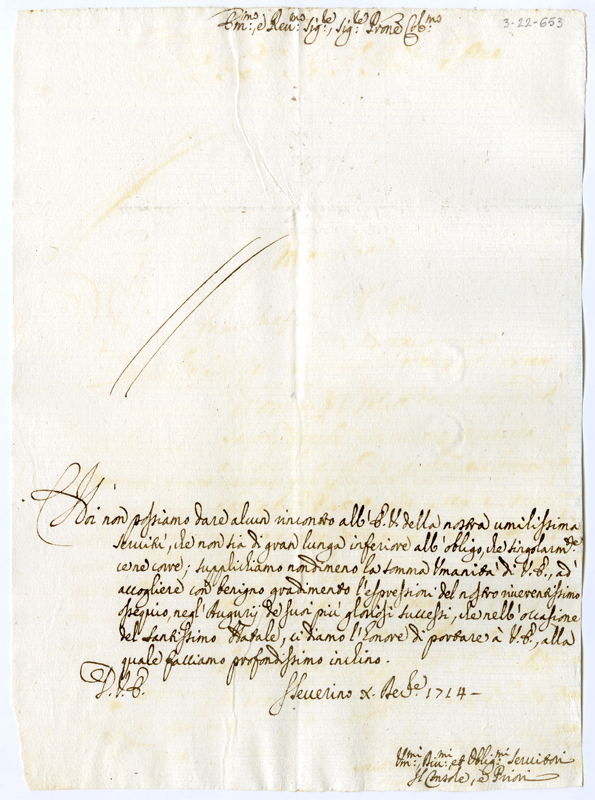 Em:mo, e Reu:mo Sig:re, Sig:re Prone Col:mo
3-22-653
Noi non possiamo dare alcun rincontro all' E.V. della nostra umilissima
seruitù, che non sia di gran lunga inferiore all' obligo, che singolarm:te
ce ne corre; supplichiamo nondimeno la somma Vmanità di V.E., ad'
accogliere con benigno gradimento l'espressioni del nostro riuerentissimo
ossequio, negl' Augurij de suoi più gloriosi successi, che nell' occasione
del Santissimo Natale, ci diamo l'honore di portare à V.E., alla
quale facciamo profondissimo inchino.
D. V. E.
Seuerino X. Be:re 1714 -
Vm:mi, Diu:mi, et Oblig:mi Seruitori
Il Console, e Priori